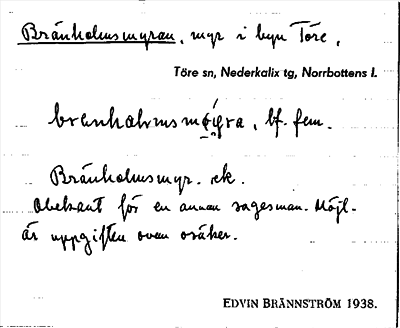 Bränholmsmyran, myr i byn Töre,
Töre sn, Nederkalix tg, Norrbottens l.
bf. fem.
Bränholmsmyr. ek.
Obekant för en annan sagesman. Möjl.
är uppgiften ovan osäker.
EDVIN BRÄNNSTRÖM 1938.